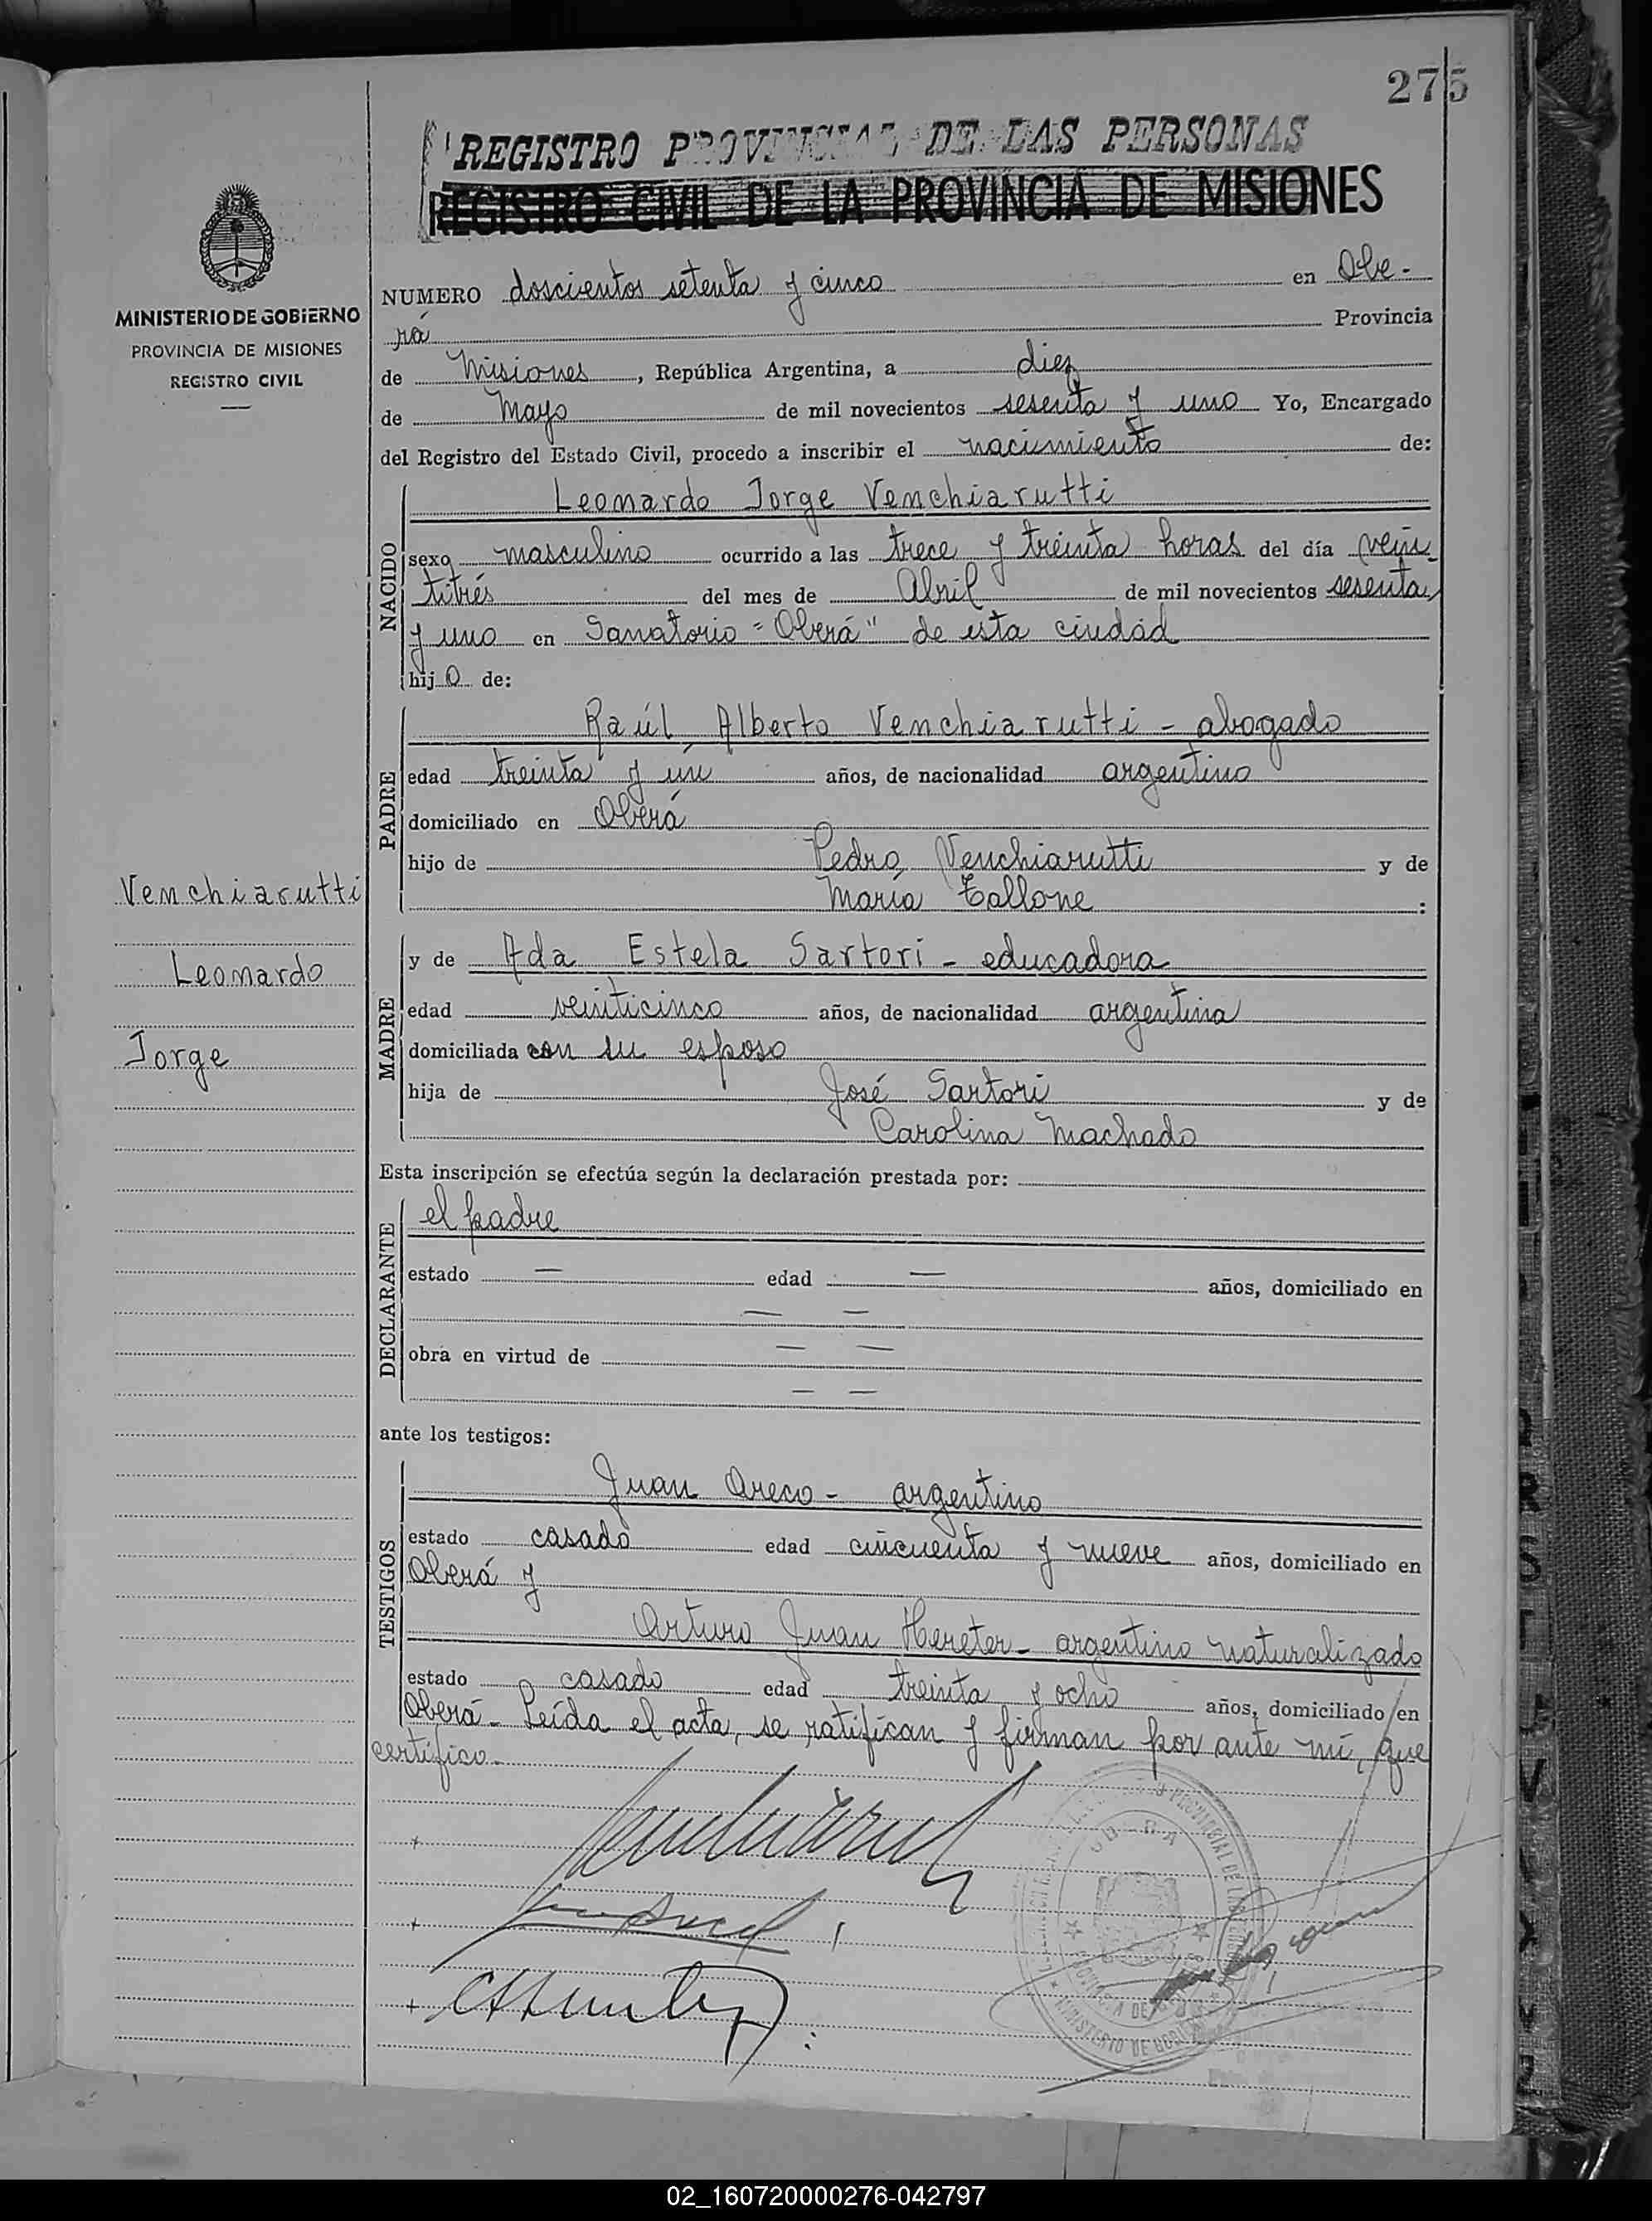 275
REGISTRO PROVINCIAL DE LAS PERSONAS
REGISTRO CIVIL DE LA PROVINCIA DE MISIONES
MINISTERIO DE GOBIERNO
PROVINCIA DE MISIONES
REGISTRO CIVIL
NUMERO doscientos setenta y cinco en Obe-
rá Provincia
de Misiones, República Argentina, a diez
de Mayo de mil novecientos sesenta y uno Yo, Encargado
del Registro del Estado Civil, procedo a inscribir el nacimiento de:
NACIDO
Leonardo Jorge Venchiarutti
sexo masculino ocurrido a las trece y treinta horas del día vein-
titrés del mes de Abril de mil novecientos sesenta
y uno en Sanatorio "Oberá" de esta ciudad
hijo de:
PADRE
Raúl Alberto Venchiarutti - abogado
edad treinta y un años, de nacionalidad argentino
domiciliado en Oberá
hijo de Pedro Venchiarutti y de
María Tallone :
Venchiarutti
Leonardo
Jorge
MADRE
y de Ada Estela Sartori - educadora
edad veinticinco años, de nacionalidad argentina
domiciliada con su esposo
hija de José Sartori y de
Carolina Machado
Esta inscripción se efectúa según la declaración prestada por:
DECLARANTE
el padre
estado — edad — años, domiciliado en
— —
obra en virtud de — —
— —
ante los testigos:
TESTIGOS
Juan Oreco - argentino
estado casado edad cincuenta y nueve años, domiciliado en
Oberá y
Arturo Juan Hereter - argentino naturalizado
estado casado edad treinta y ocho años, domiciliado en
Oberá - Leída el acta, se ratifican y firman por ante mí, que
certifico.-
02_160720000276-042797